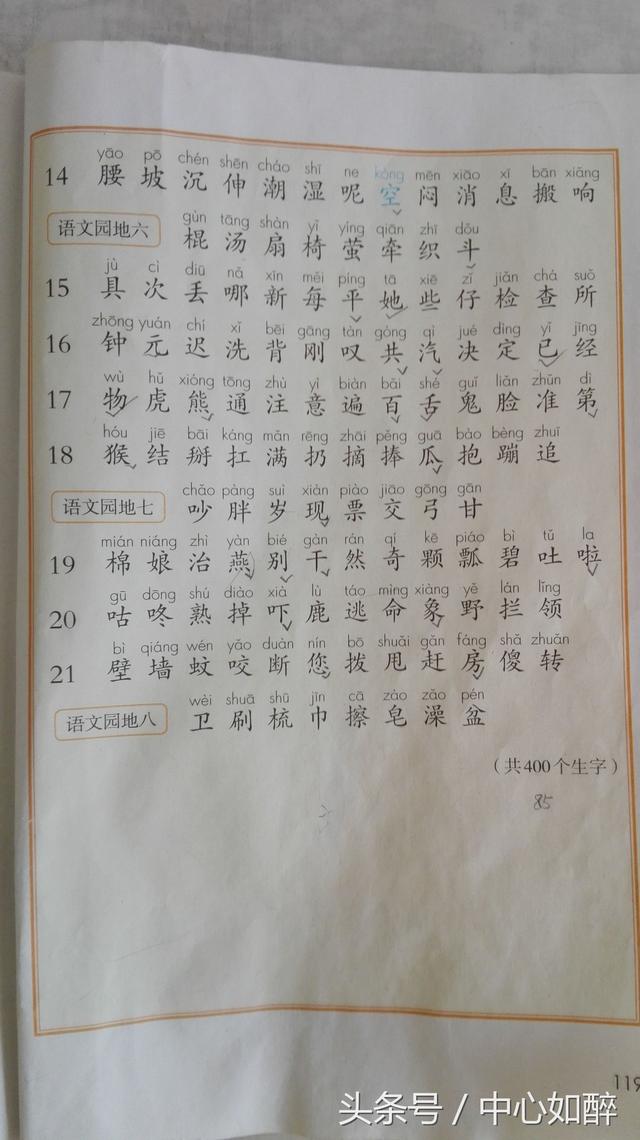 yāo pō chén shēn cháo shī ne kōng mēn xiāo xī bān xiǎng
14 腰 坡 沉 伸 潮 湿 呢 空 闷 消 息 搬 响
gùn tāng shàn yǐ yíng qiān zhī dǒu
语文园地六 棍 汤 扇 椅 萤 牵 织 斗
jù cì diū nǎ xīn měi píng tā xiē zǐ jiǎn chá suǒ
15 具 次 丢 哪 新 每 平 她 些 仔 检 查 所
zhōng yuán chí xǐ bēi gāng tàn gòng qì jué dìng yǐ jīng
16 钟 元 迟 洗 背 刚 叹 共 汽 决 定 已 经
wù hǔ xióng tōng zhù yì biàn bǎi shé guǐ liǎn zhǔn dì
17 物 虎 熊 通 注 意 遍 百 舌 鬼 脸 准 第
hóu jiē bāi káng mǎn rēng zhāi pěng guā bào bèng zhuī
18 猴 结 掰 扛 满 扔 摘 捧 瓜 抱 蹦 追
chǎo pàng suì xiàn piào jiāo gōng gān
语文园地七 吵 胖 岁 现 票 交 弓 甘
mián niáng zhì yàn bié gàn rán qí kē piáo bì tǔ la
19 棉 娘 治 燕 别 干 然 奇 颗 瓢 碧 吐 啦
gū dōng shú diào xià lù táo mìng xiàng yě lán lǐng
20 咕 咚 熟 掉 吓 鹿 逃 命 象 野 拦 领
bì qiáng wén yǎo duàn nín bō shuǎi gǎn fáng shǎ zhuǎn
21 壁 墙 蚊 咬 断 您 拨 甩 赶 房 傻 转
wèi shuā shū jīn cā zào zǎo pén
语文园地八 卫 刷 梳 巾 擦 皂 澡 盆
（共400个生字）
85
119
头条号 / 中心如醉